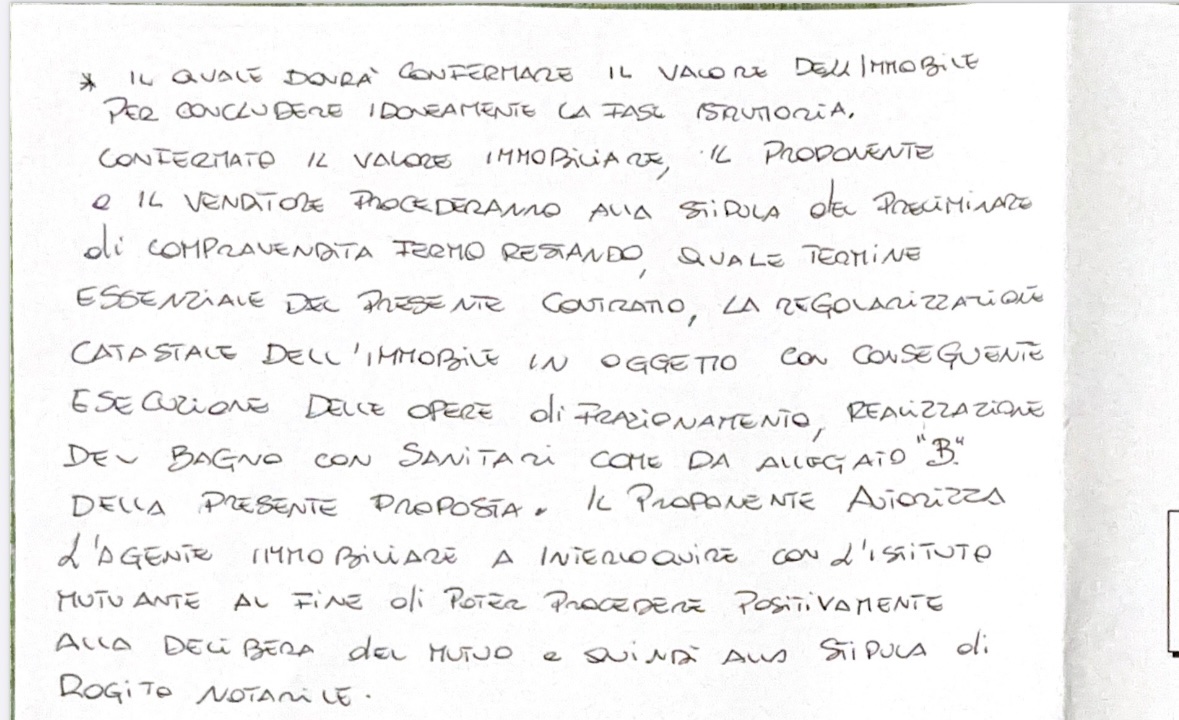 * IL QUALE DOVRÀ CONFERMARE IL VALORE DELL'IMMOBILE
PER CONCLUDERE IDONEAMENTE LA FASE ISRUTTORIA.
CONFERMATO IL VALORE IMMOBILIARE, IL PROPONENTE
e IL VENDITORE PROCEDERANNO ALLA STIPULA del PRELIMINARE
di COMPRAVENDITA FERMO RESTANDO, QUALE TERMINE
ESSENZIALE DEL PRESENTE CONTRATTO, LA REGOLARIZZAZIONE
CATASTALE DELL'IMMOBILE IN OGGETTO CON CONSEGUENTE
ESECUZIONE DELLE OPERE di FRAZIONAMENTO, REALIZZAZIONE
DEL BAGNO CON SANITARI COME DA ALLEGATO "B"
DELLA PRESENTE PROPOSTA. IL PROPONENTE AUTORIZZA
L'AGENTE IMMOBILIARE A INTERLOQUIRE CON L'ISTITUTO
MUTUANTE AL FINE di POTER PROCEDERE POSITIVAMENTE
ALLA DELIBERA del MUTUO e QUINDI ALLA STIPULA di
ROGITO NOTARILE.